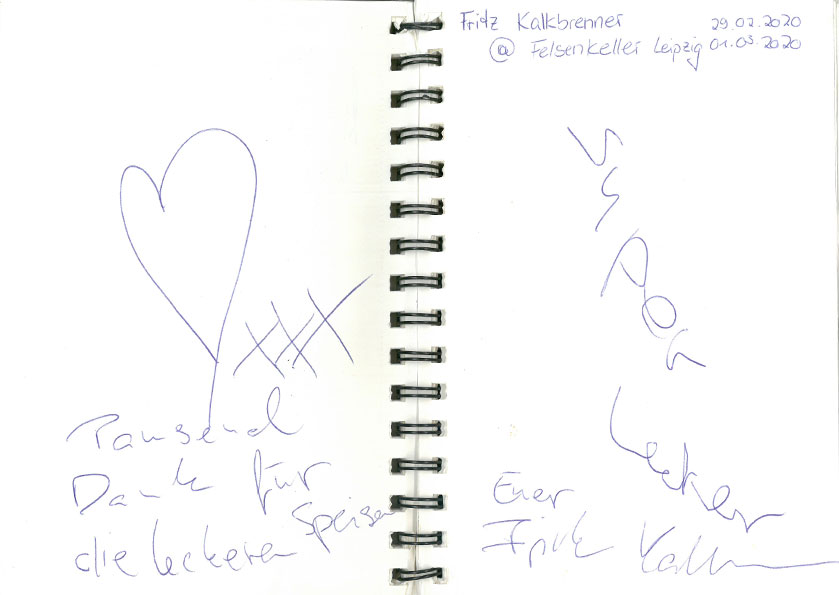 XXX
Tausend
Dank für
die leckeren Speisen
Fritz Kalkbrenner 29.02.2020
@ Felsenkeller Leipzig 01.03.2020
Super
Lecker
Euer
Fritz Kalk